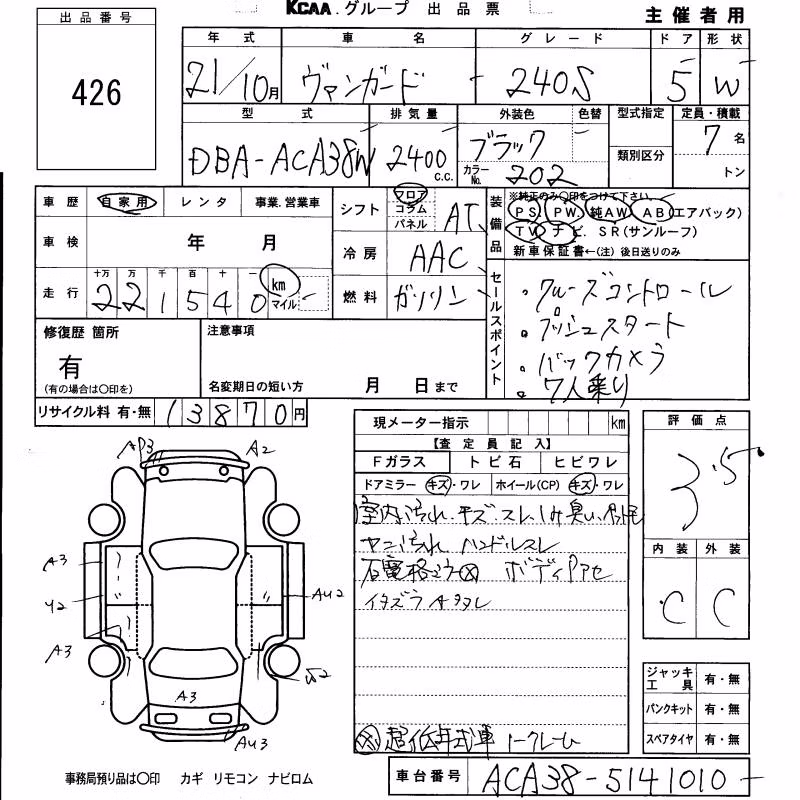 KCAA.グループ 出品票
主催者用
出品番号
426
年式 車名 グレード ドア 形状
21/10月 ヴァンガード 240S 5 W
型式 排気量 外装色 色替 型式指定 定員・積載
DBA-ACA38W 2400 c.c. ブラック カラーNo. 202 類別区分 7名 トン
車歴 自家用 レンタ 事業.営業車
シフト フロア コラム パネル AT
装備品 ※純正のみ○印をつけて下さい.
PS. PW. 純AW AB(エアバック)
TV ナビ. SR(サンルーフ)
新車保証書←(注) 後日送りのみ
車検 年 月
冷房 AAC
走行 十万 万 千 百 十 一
221540 km マイル
燃料 ガソリン
セールスポイント
・クルーズコントロール
・プッシュスタート
・バックカメラ
・7人乗り
修復歴 箇所
有
(有の場合は○印を)
注意事項
名変期日の短い方 月 日まで
リサイクル料 有・無 13870円
現メーター指示 km
【査定員記入】
Fガラス トビ石 ヒビワレ
ドアミラー キズ・ワレ ホイール(CP) キズ・ワレ
室内汚れ キズ スレ シミ 臭い
ヤニ汚れ ハンドルスレ
石電格ミラー ボディ
イタズラ
超低年式車 ノークレーム
評価点
3.5
内装 外装
C C
ジャッキ工具 有・無
パンクキット 有・無
スペアタイヤ 有・無
A2
A3
Y2
A3
AU2
A3
AU3
事務局預り品は○印 カギ リモコン ナビロム
車台番号 ACA38-5141010